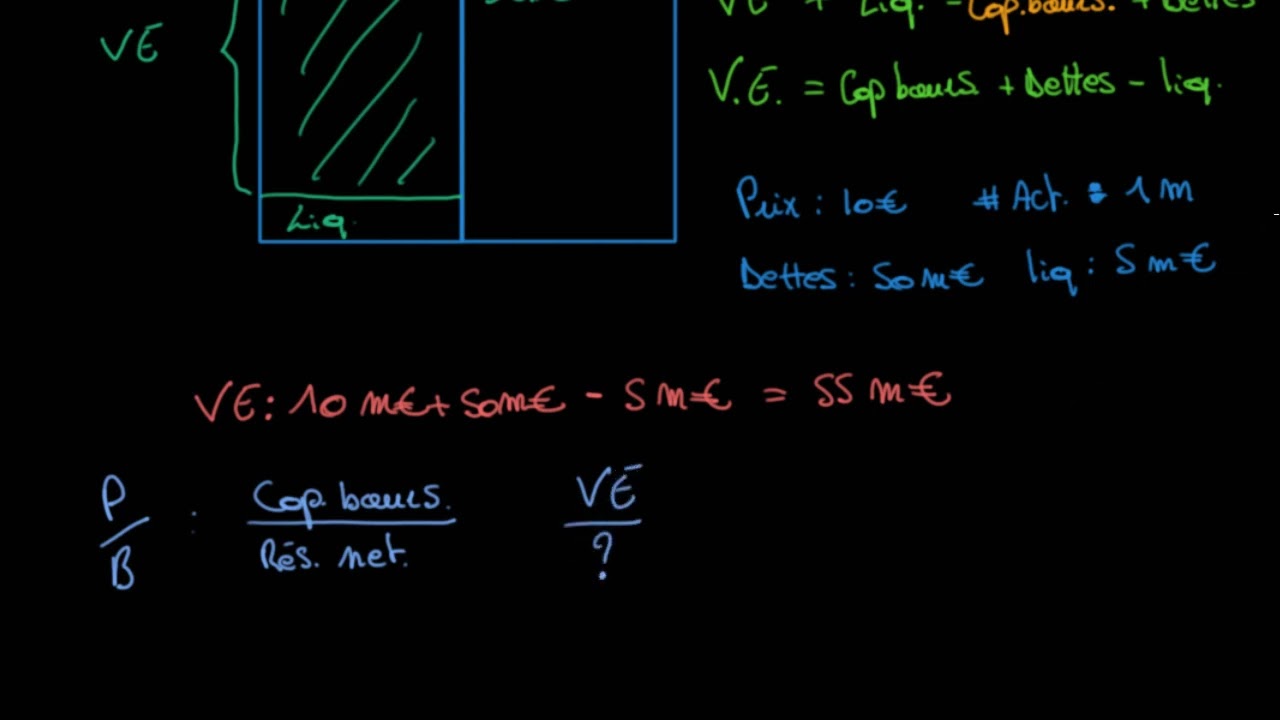 VE + Liq. = Cap.bours. + Dettes
VE
V.E. = Cap bours + Dettes - liq.
Prix : 10€ # Act. : 1 m
Liq.
Dettes : 50 m€ liq : 5 m€
VE: 10 m€ + 50 m€ - 5 m€ = 55 m€
P/B : Cap. bours. / Rés. net. VE / ?